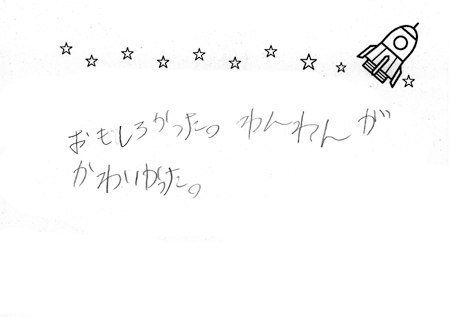 おもしろかった。わんわんが
かわいかった。